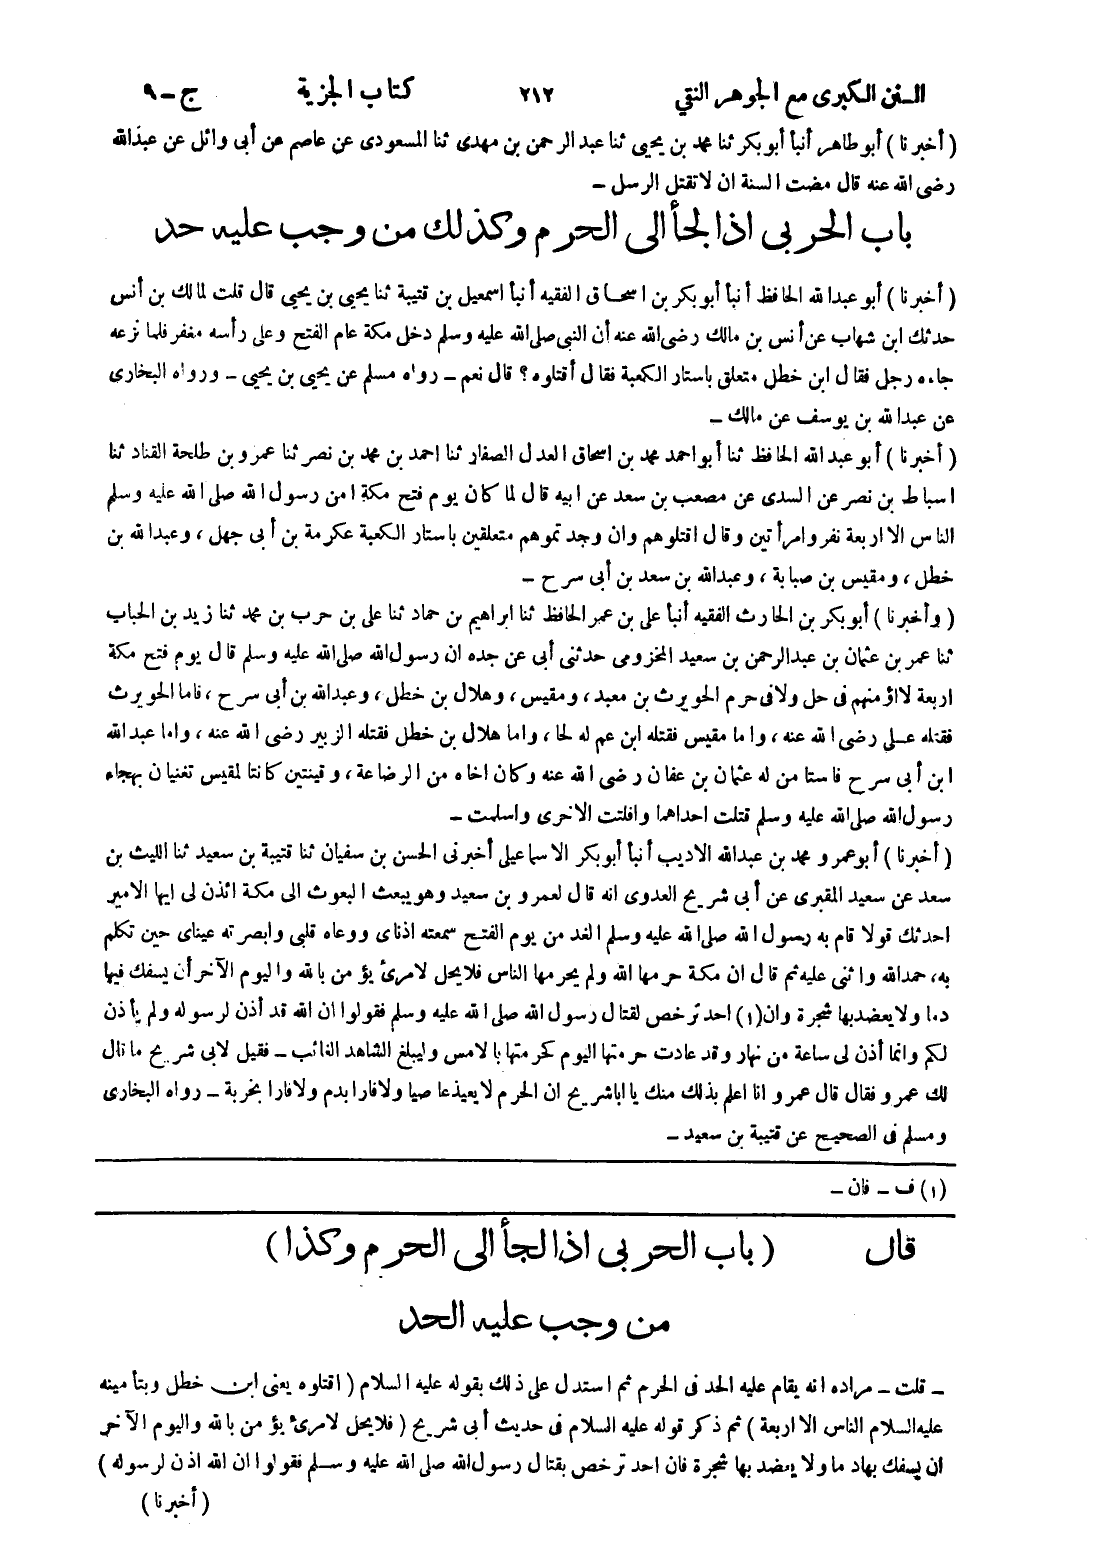 السنن الكبرى مع الجوهر النقي ٢١٢ كتاب الجزية ج – ٩
( أخبرنا ) أبو طاهر أنبأ أبو بكر ثنا محمد بن يحيى ثنا عبد الرحمن بن مهدى ثنا المسعودى عن عاصم عن أبى وائل عن عبدالله
رضى الله عنه قال مضت السنة ان لا تقتل الرسل –
باب الحربى اذا لجأ الى الحرم وكذلك من وجب عليه حد
( أخبرنا ) أبو عبدالله الحافظ أنبأ أبو بكر بن اسحاق الفقيه أنبأ اسمعيل بن قتيبة ثنا يحيى بن يحيى قال قلت لمالك بن أنس
حدثك ابن شهاب عن أنس بن مالك رضى الله عنه أن النبى صلى الله عليه وسلم دخل مكة عام الفتح وعلى رأسه مغفر فلما نزعه
جاءه رجل فقال ابن خطل متعلق باستار الكعبة فقال أقتلوه ؟ قال نعم – رواه مسلم عن يحيى بن يحيى – ورواه البخارى
عن عبدالله بن يوسف عن مالك –
( أخبرنا ) أبو عبد الله الحافظ ثنا أبو احمد محمد بن اسحاق العدل الصفار ثنا احمد بن محمد بن نصر ثنا عمرو بن طلحة القناد ثنا
اسباط بن نصر عن السدى عن مصعب بن سعد عن ابيه قال لما كان يوم فتح مكة امن رسول الله صلى الله عليه وسلم
الناس الا اربعة نفر وامرأتين وقال اقتلوهم وان وجدتموهم متعلقين باستار الكعبة عكرمة بن أبى جهل ، وعبدالله بن
خطل ، ومقيس بن صبابة ، وعبدالله بن سعد بن أبى سرح –
( وأخبرنا ) أبو بكر بن الحارث الفقيه أنبأ على بن عمر الحافظ ثنا ابراهيم بن حماد ثنا على بن حرب بن محمد ثنا زيد بن الحباب
ثنا عمر بن عثمان بن عبدالرحمن بن سعيد المخزومى حدثنى أبى عن جده ان رسول الله صلى الله عليه وسلم قال يوم فتح مكة
اربعة لا اؤمنهم فى حل ولا فى حرم الحويرث بن معبد ، ومقيس ، وهلال بن خطل ، وعبدالله بن أبى سرح ، فاما الحويرث
فقتله على رضى الله عنه ، واما مقيس فقتله ابن عم له لحا ، واما هلال بن خطل فقتله الزبير رضى الله عنه ، واما عبدالله
ابن أبى سرح فاستامن له عثمان بن عفان رضى الله عنه وكان اخاه من الرضاعة ، وقينتين كانتا لمقيس تغنيان بهجاء
رسول الله صلى الله عليه وسلم قتلت احداهما وافلتت الاخرى واسلمت –
( أخبرنا ) أبو عمرو محمد بن عبدالله الاديب أنبأ أبو بكر الاسماعيلى أخبرنى الحسن بن سفيان ثنا قتيبة بن سعيد ثنا الليث بن
سعد عن سعيد المقبرى عن أبى شريح العدوى انه قال لعمرو بن سعيد وهو يبعث البعوث الى مكة ائذن لى ايها الامير
احدثك قولا قام به رسول الله صلى الله عليه وسلم الغد من يوم الفتح سمعته اذناى ووعاه قلبى وابصرته عيناى حين تكلم
به ، حمدالله واثنى عليه ثم قال ان مكة حرمها الله ولم يحرمها الناس فلا يحل لامرئ يؤمن بالله واليوم الآخر أن يسفك فيها
دما ولا يعضد بها شجرة وان(١) احد ترخص لقتال رسول الله صلى الله عليه وسلم فقولوا ان الله قد أذن لرسوله ولم يأذن
لكم وانما أذن لى ساعة من نهار وقد عادت حرمتها اليوم كحرمتها بالامس وليبلغ الشاهد الغائب – فقيل لابى شريح ما قال
لك عمرو فقال قال عمرو انا اعلم بذلك منك يا ابا شريح ان الحرم لا يعيذ عاصيا ولا فارا بدم ولا فارا بخربة – رواه البخارى
ومسلم فى الصحيح عن قتيبة بن سعيد –
(١) ف – فان –
قال ( باب الحربى اذا لجأ الى الحرم وكذا )
من وجب عليه الحد
– قلت – مراده انه يقام عليه الحد فى الحرم ثم استدل على ذلك بقوله عليه السلام ( اقتلوه يعنى ابن خطل وبتأمينه
عليه السلام الناس الا اربعة ) ثم ذكر قوله عليه السلام فى حديث أبى شريح ( فلا يحل لامرئ يؤمن بالله واليوم الآخر
ان يسفك بها دما ولا يعضد بها شجرة فان احد ترخص بقتال رسول الله صلى الله عليه وسلم فقولوا ان الله اذن لرسوله )
( أخبرنا )